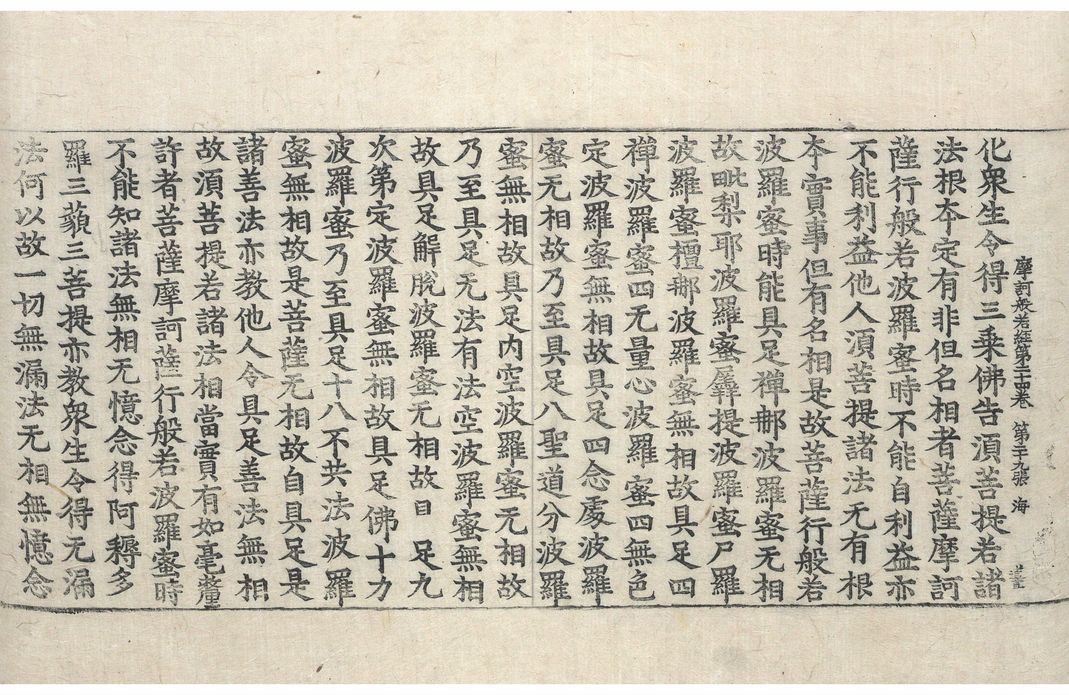 摩訶般若經第二十四卷 第二十九張 海
化衆生令得三乗佛告湏菩提若諸
法根夲定有非但名相者菩薩摩訶
薩行般若波羅蜜時不能自利益亦
不能利益他人湏菩提諸法无有根
夲實事但有名相是故菩薩行般若
波羅蜜時能具足禪𨚗波羅蜜无相
故毗梨耶波羅蜜羼提波羅蜜尸羅
波羅蜜檀𨚗波羅蜜無相故具足四
禪波羅蜜四无量心波羅蜜四無色
定波羅蜜無相故具足四念處波羅
蜜无相故乃至具足八聖道分波羅
蜜無相故具足内空波羅蜜无相故
乃至具足无法有法空波羅蜜無相
故具足解脫波羅蜜无相故具足九
次第定波羅蜜無相故具足佛十力
波羅蜜乃至具足十八不共法波羅
蜜無相故是菩薩无相故自具足是
諸善法亦教他人令具足善法無相
故湏菩提若諸法相當實有如毫釐
許者菩薩摩訶薩行般若波羅蜜時
不能知諸法無相无憶念得阿耨多
羅三藐三菩提亦教衆生令得无漏
法何以故一切無漏法无相無憶念